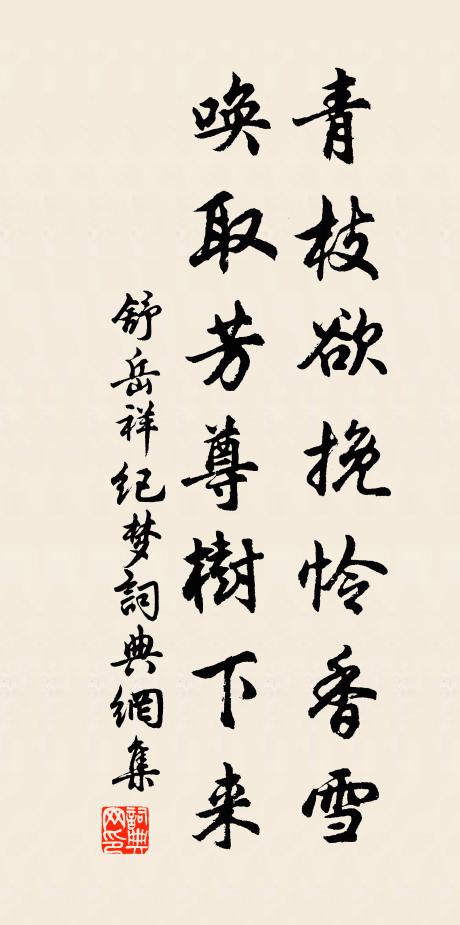 青枝欲挽怜香雪
唤取芳尊樹下来
舒岳祥纪梦詞典網集
詞典网印